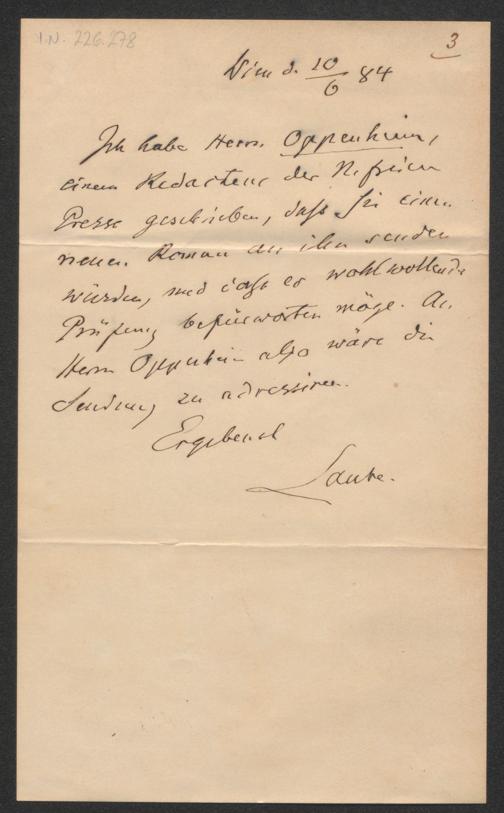 I.N. 226.278
3
Wien d. 10/6 84
Ich habe Herrn Oppenheim,
einem Redacteur der N. freien
Presse geschrieben, daß Sie einen
neuen Roman an ihn senden
würden, und daß er wohlwollende
Prüfung befürworten möge. An
Herrn Oppenheim also wäre die
Sendung zu adressiren.
Ergebenst
Laube.